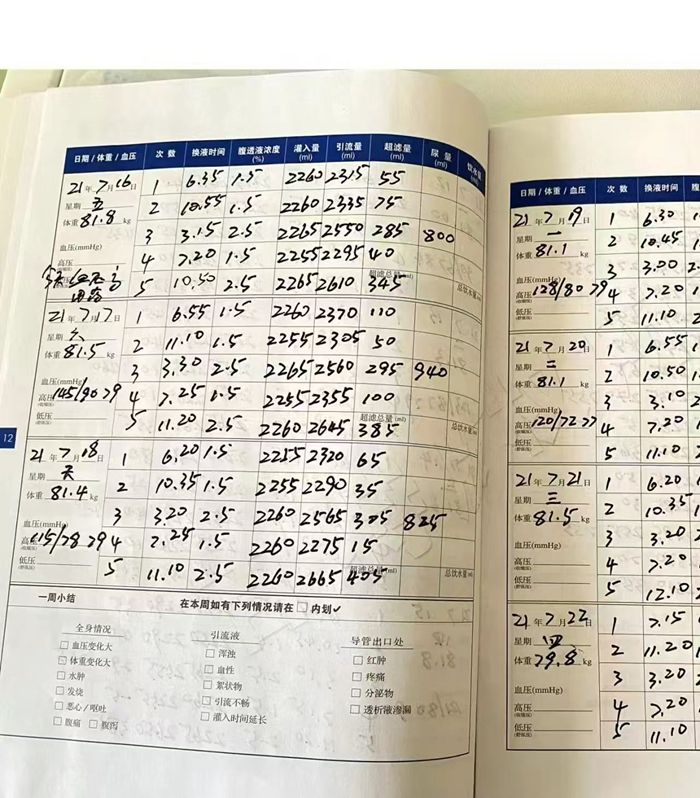 日期/体重/血压 次数 换液时间 腹透液浓度(%) 灌入量(ml) 引流量(ml) 超滤量(ml) 尿量(ml) 饮水量
21年7月16日 1 6.35 1.5 2260 2315 55
星期五 2 10.55 1.5 2260 2335 75
体重81.8kg 3 3.15 2.5 2265 2550 285 800
血压(mmHg)
高压 4 7.20 1.5 2255 2295 40
5 10.50 2.5 2265 2610 超滤总量(ml) 345 总饮水量
21年7月17日 1 6.55 1.5 2260 2370 110
星期六 2 11.10 1.5 2255 2305 50
体重81.5kg 3 3.30 2.5 2265 2560 295 940
血压(mmHg)
高压(收缩压) 145/90 79 4 7.25 1.5 2255 2355 100
低压(舒张压) 5 11.20 2.5 2260 2645 超滤总量(ml) 385 总饮水量
21年7月18日 1 6.20 1.5 2255 2320 65
星期天 2 10.35 1.5 2255 2290 35
体重81.4kg 3 3.20 2.5 2260 2565 305 825
血压(mmHg)
高压(收缩压) 115/78 79 4 7.25 1.5 2260 2275 15
低压(舒张压) 5 11.10 2.5 2260 2665 超滤总量(ml) 405 总饮水量(ml)
12
一周小结 在本周如有下列情况请在□内划✓
全身情况 引流液 导管出口处
□血压变化大 □浑浊 □红肿
□体重变化大 □血性 □疼痛
□水肿 □絮状物 □分泌物
□发烧 □引流不畅 □透析液渗漏
□恶心/呕吐 □灌入时间延长
□腹痛 □腹泻
日期/体重/血压 次数 换液时间 腹
21年7月19日 1 6.30
星期一 2 10.45
体重81.1kg 3 3.00 2.
血压(mmHg)
高压(收缩压) 128/80 79 4 7.20
低压(舒张压) 5 11.10 2
21年7月20日 1 6.55
星期二 2 10.50
体重81.1kg 3 3.10
血压(mmHg)
高压(收缩压) 120/72 77 4 7.20
低压(舒张压) 5 11.10
21年7月21日 1 6.20
星期三 2 10.35
体重81.5kg 3 3.20
血压(mmHg)
高压(收缩压) 4 7.20
低压(舒张压) 5 12.10
21年7月22日 1 7.15
星期四 2 11.20
体重79.8kg 3 3.20
血压(mmHg)
高压(收缩压) 4 7.20
低压(舒张压) 5 11.10